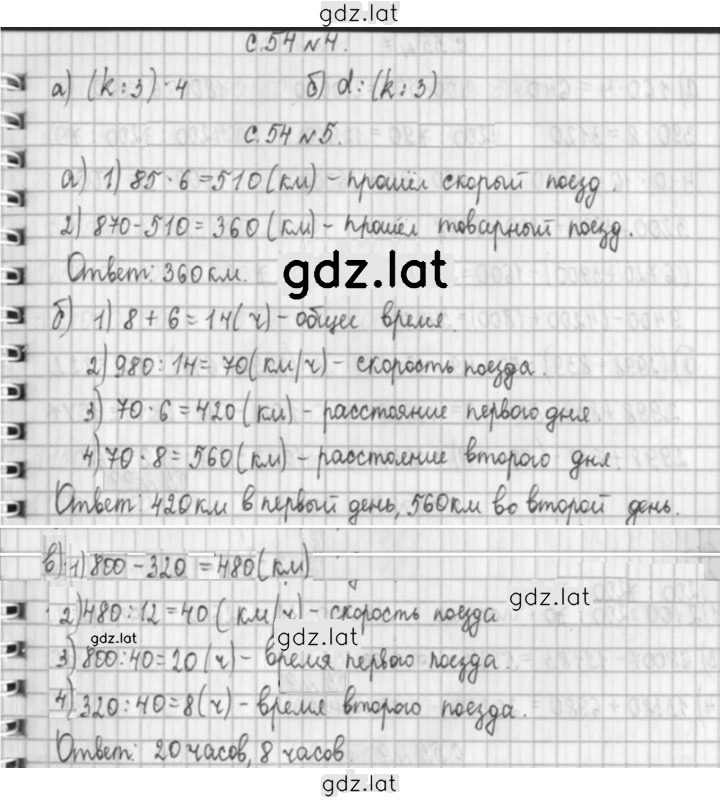 gdz.lat
с.54 №4.
а) (k:3)·4 б) d:(k:3)
с.54 №5.
а) 1) 85·6=510(км) - прошёл скорый поезд.
2) 870-510=360(км) - прошёл товарный поезд.
Ответ: 360км.
gdz.lat
б) 1) 8+6=14(ч) - общее время.
2) 980:14=70(км/ч) - скорость поезда.
3) 70·6=420(км) - расстояние первого дня.
4) 70·8=560(км) - расстояние второго дня.
Ответ: 420км в первый день, 560км во второй день.
в) 1) 800-320=480(км)
2) 480:12=40(км/ч) - скорость поезда
gdz.lat
gdz.lat
gdz.lat
3) 800:40=20(ч) - время первого поезда.
4) 320:40=8(ч) - время второго поезда.
Ответ: 20 часов, 8 часов
gdz.lat